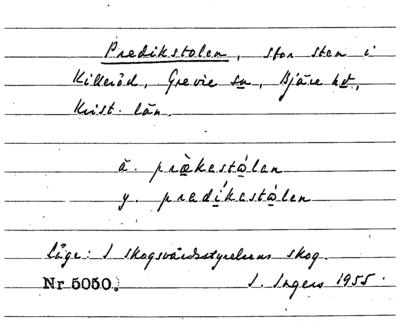 Predikstolen, stor sten i
Killeröd, Grevie sn, Bjäre hd,
Krist. län.
ä. prä̀kestå̀len
y. predíkestå̀len
Läge: I skogsvårdsstyrelsens skog.
Nr 5050. I. Ingers 1955.